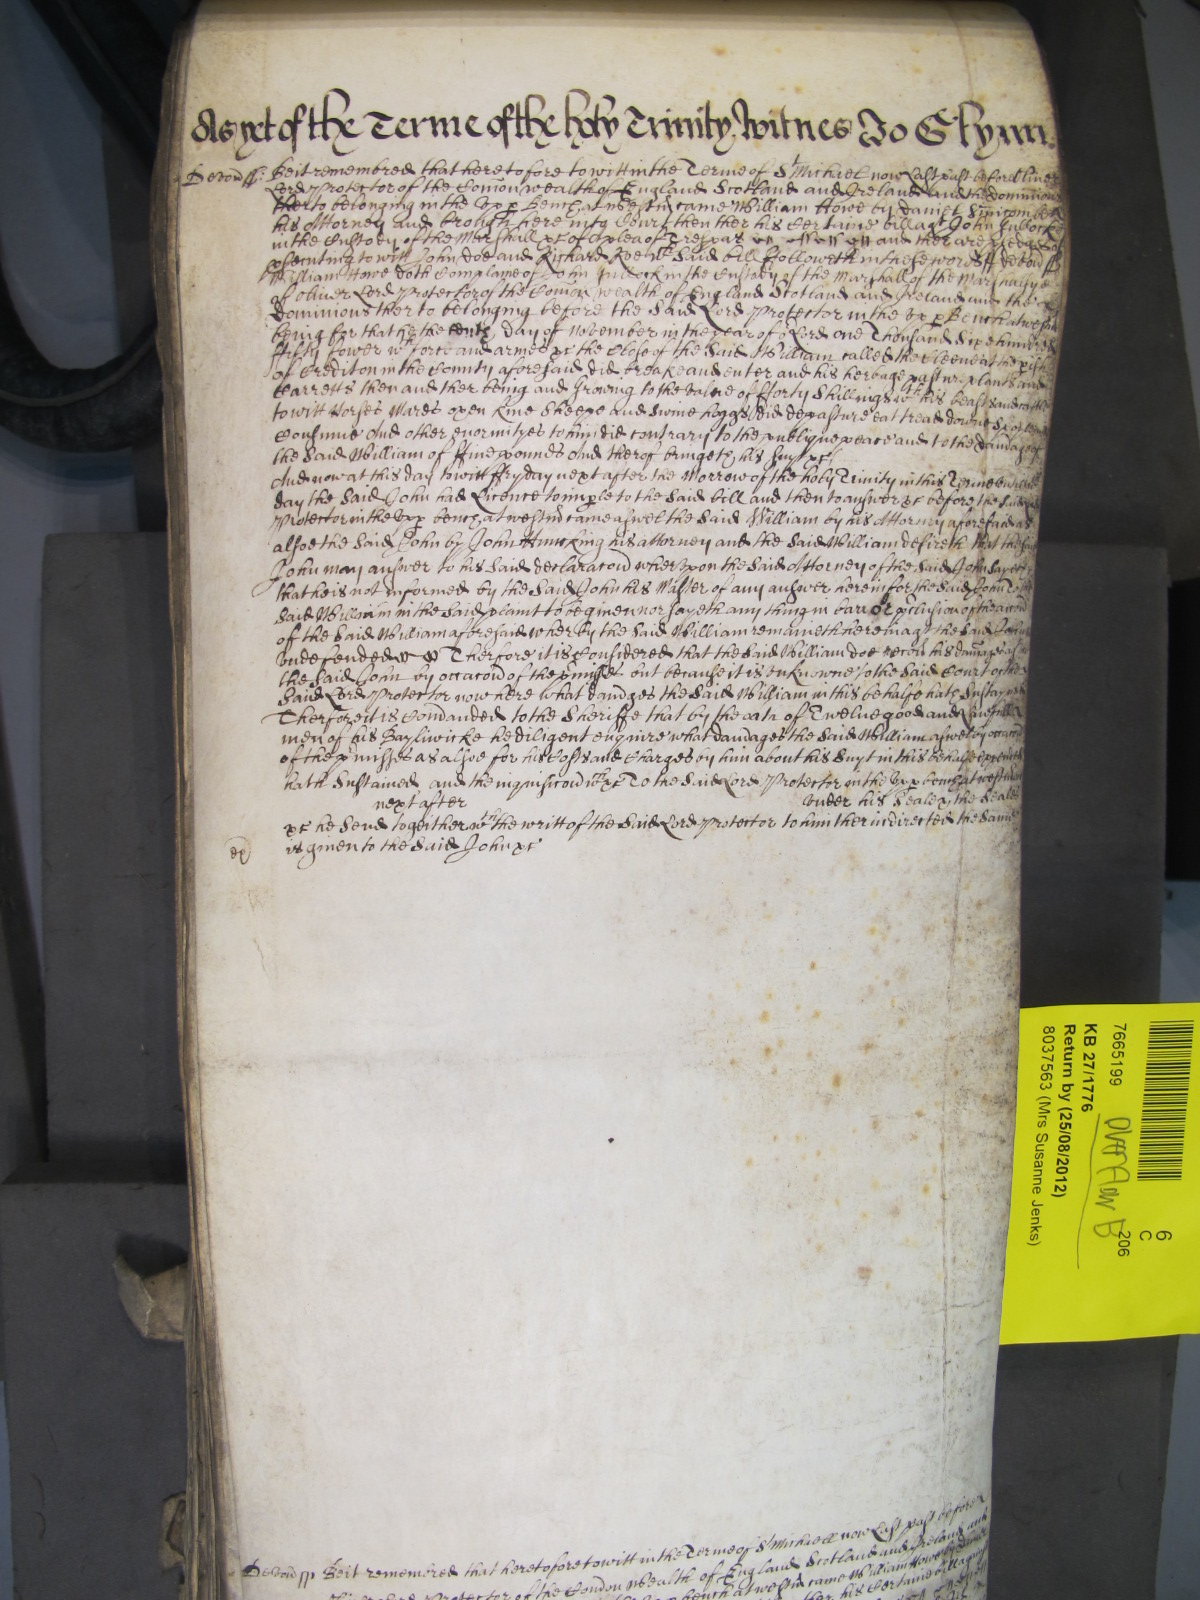 As yet of the Terme of the holy Trinity Witnes Jo Glynn.
Devon ss: Beit remembred that heretofore to witt in the Terme of St Michael now last past before Oliver
Lord Protector of the Comon wealth of England Scotland and Ireland and the dominions
therto belonging in the Upp Bench at Westm came William Howe by Daniel
his Attorney and brought here into Court then ther his Certaine bill agt John Jullocke
in the Custody of the Marshall &c of a plea of Trespas and ther are pledges of
psecuting to witt John Doe and Richard Roe wch Said bill followeth in these words ss Devon ss
William Howe doth Complaine of John Jullock in the Custody of the Marshall of the Marshalsye
of Oliver Lord Protector of the Comon wealth of England Scotland and Ireland and the
dominions therto belonging before the Said Lord Protector in the Upp Bench at westm
being for that he the tenth day of November in the year of o Lord one Thousand Six hundred
fifty fower wth force and armes &c the Close of the Said William called the at the pish
of Crediton in the County aforesaid did breake and enter and his herbage pasture plants and
Carretts then and ther being and Growing to the value of fforty Shillings wth his beasts and cattle
to witt Horses Mares oxen kine Sheepe and Swine hoggs did depasture eat tread downe
Consume And other enormityes to him did contrary to the publique peace and to the damage of
the Said William of ffive pounds And therof bringeth his Suyt &c
And now at this day to witt ffryday next after the Morrow of the holy Trinity in this Terme untill wch
day the Said John had Licence to imple to the Said bill and then to answer &c before the Said Lord
Protector in the Upp bench at westm came aswel the Said William by his Attorny aforesaid as
alsoe the Said John by John his attorney and the Said William desireth that the said
John may answer to his Said declaration wherupon the Said Attorney of the Said John Sayeth
that he is not informed by the Said John his Master of any answer herein for the Said John to the
Said William in the Said plaint to be given nor sayeth any thing in barr or pclusion of the accon
of the Said William aforesaid wherby the Said William remaineth herein agt the Said John
undefended Therfore it is Considered that the Said William doe recov his damages agt
the Said John by occacon of the pmisses but because it is unknowne to the Said Court of the
Said Lord Protector now here what damages the Said William in this behalfe hath Sustayned
Therfore it is Comanded to the Sheriffe that by the oath of Twelve good and Lawfull
men of his Bayliwicke he diligent enquire what damages the Said William aswel by occacon
of the pmisses as alsoe for his Costs and Charges by him about his Suyt in this behalfe expended
hath Sustained and the inquisicon wch &c To the Said Lord Protector in the Upp bench at westm
next after under his Seale & the Seales
&c he Send togeither wth the writt of the Said Lord Protector to him therin directed the Same
is given to the Said John &c
Devon ss Beit remembred that heretofore to witt in the Terme of St Michaell now Last past before
Protector of the Comon Wealth of England Scotland and Ireland and
bench at westm came William Howe
his Certaine bill
7665199
KB 27/1776
Return by (25/08/2012)
8037563 (Mrs Susanne Jenks)
6
C
206
Overflow B